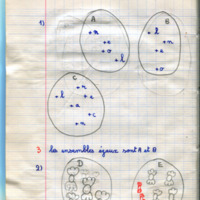 1)
A
B
n
e
a
o
l
l
n
e
a
o
C
n
l
e
a
c
n
3 les ensembles égaux sont A et B
2)
D
E